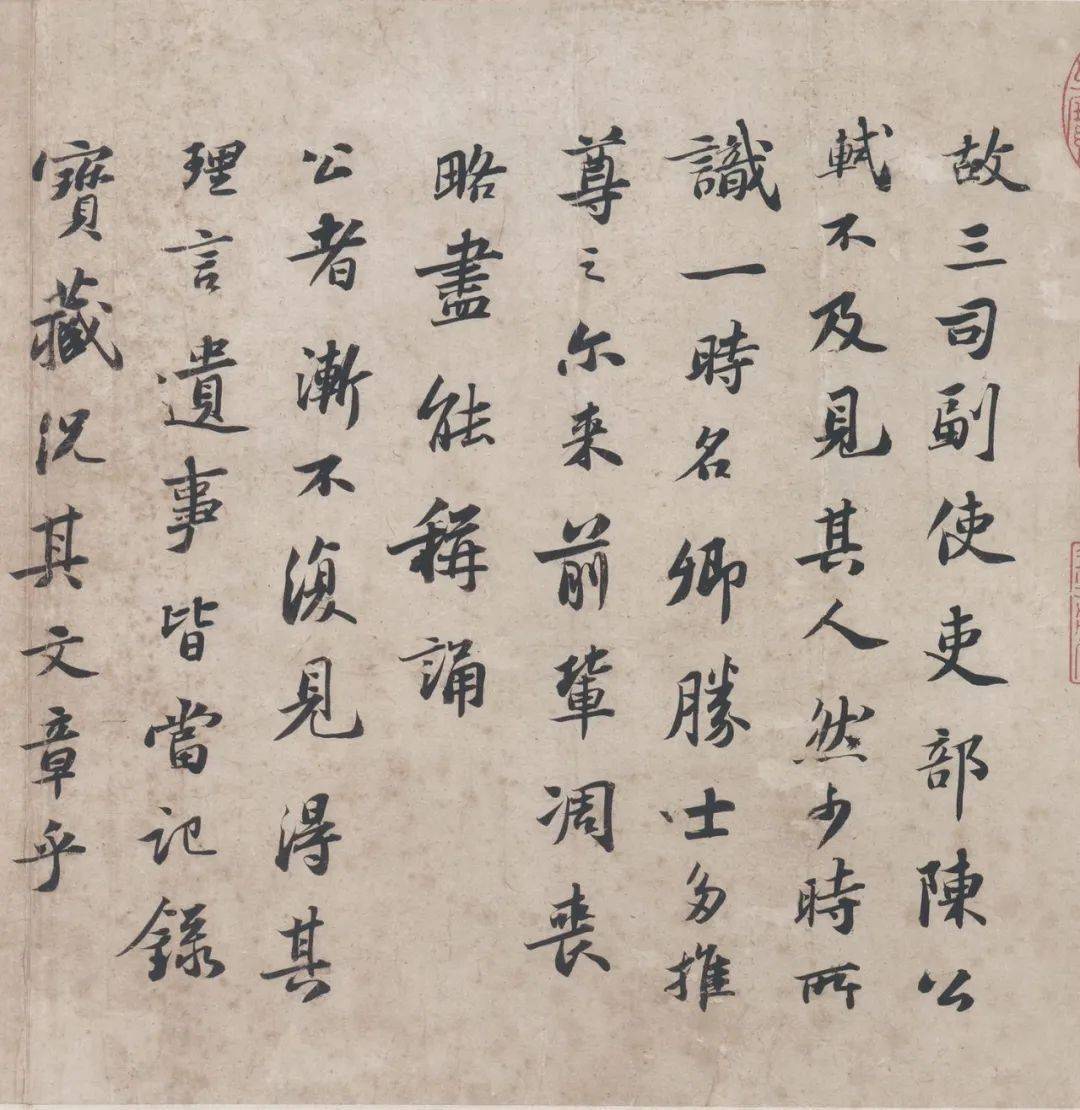 故三司副使吏部陳公
軾不及見其人然少時所
識一時名卿勝士多推
尊之尔来前輩凋喪
略盡能稱誦
公者漸不復見得其
理言遺事皆當記錄
寶藏況其文章乎